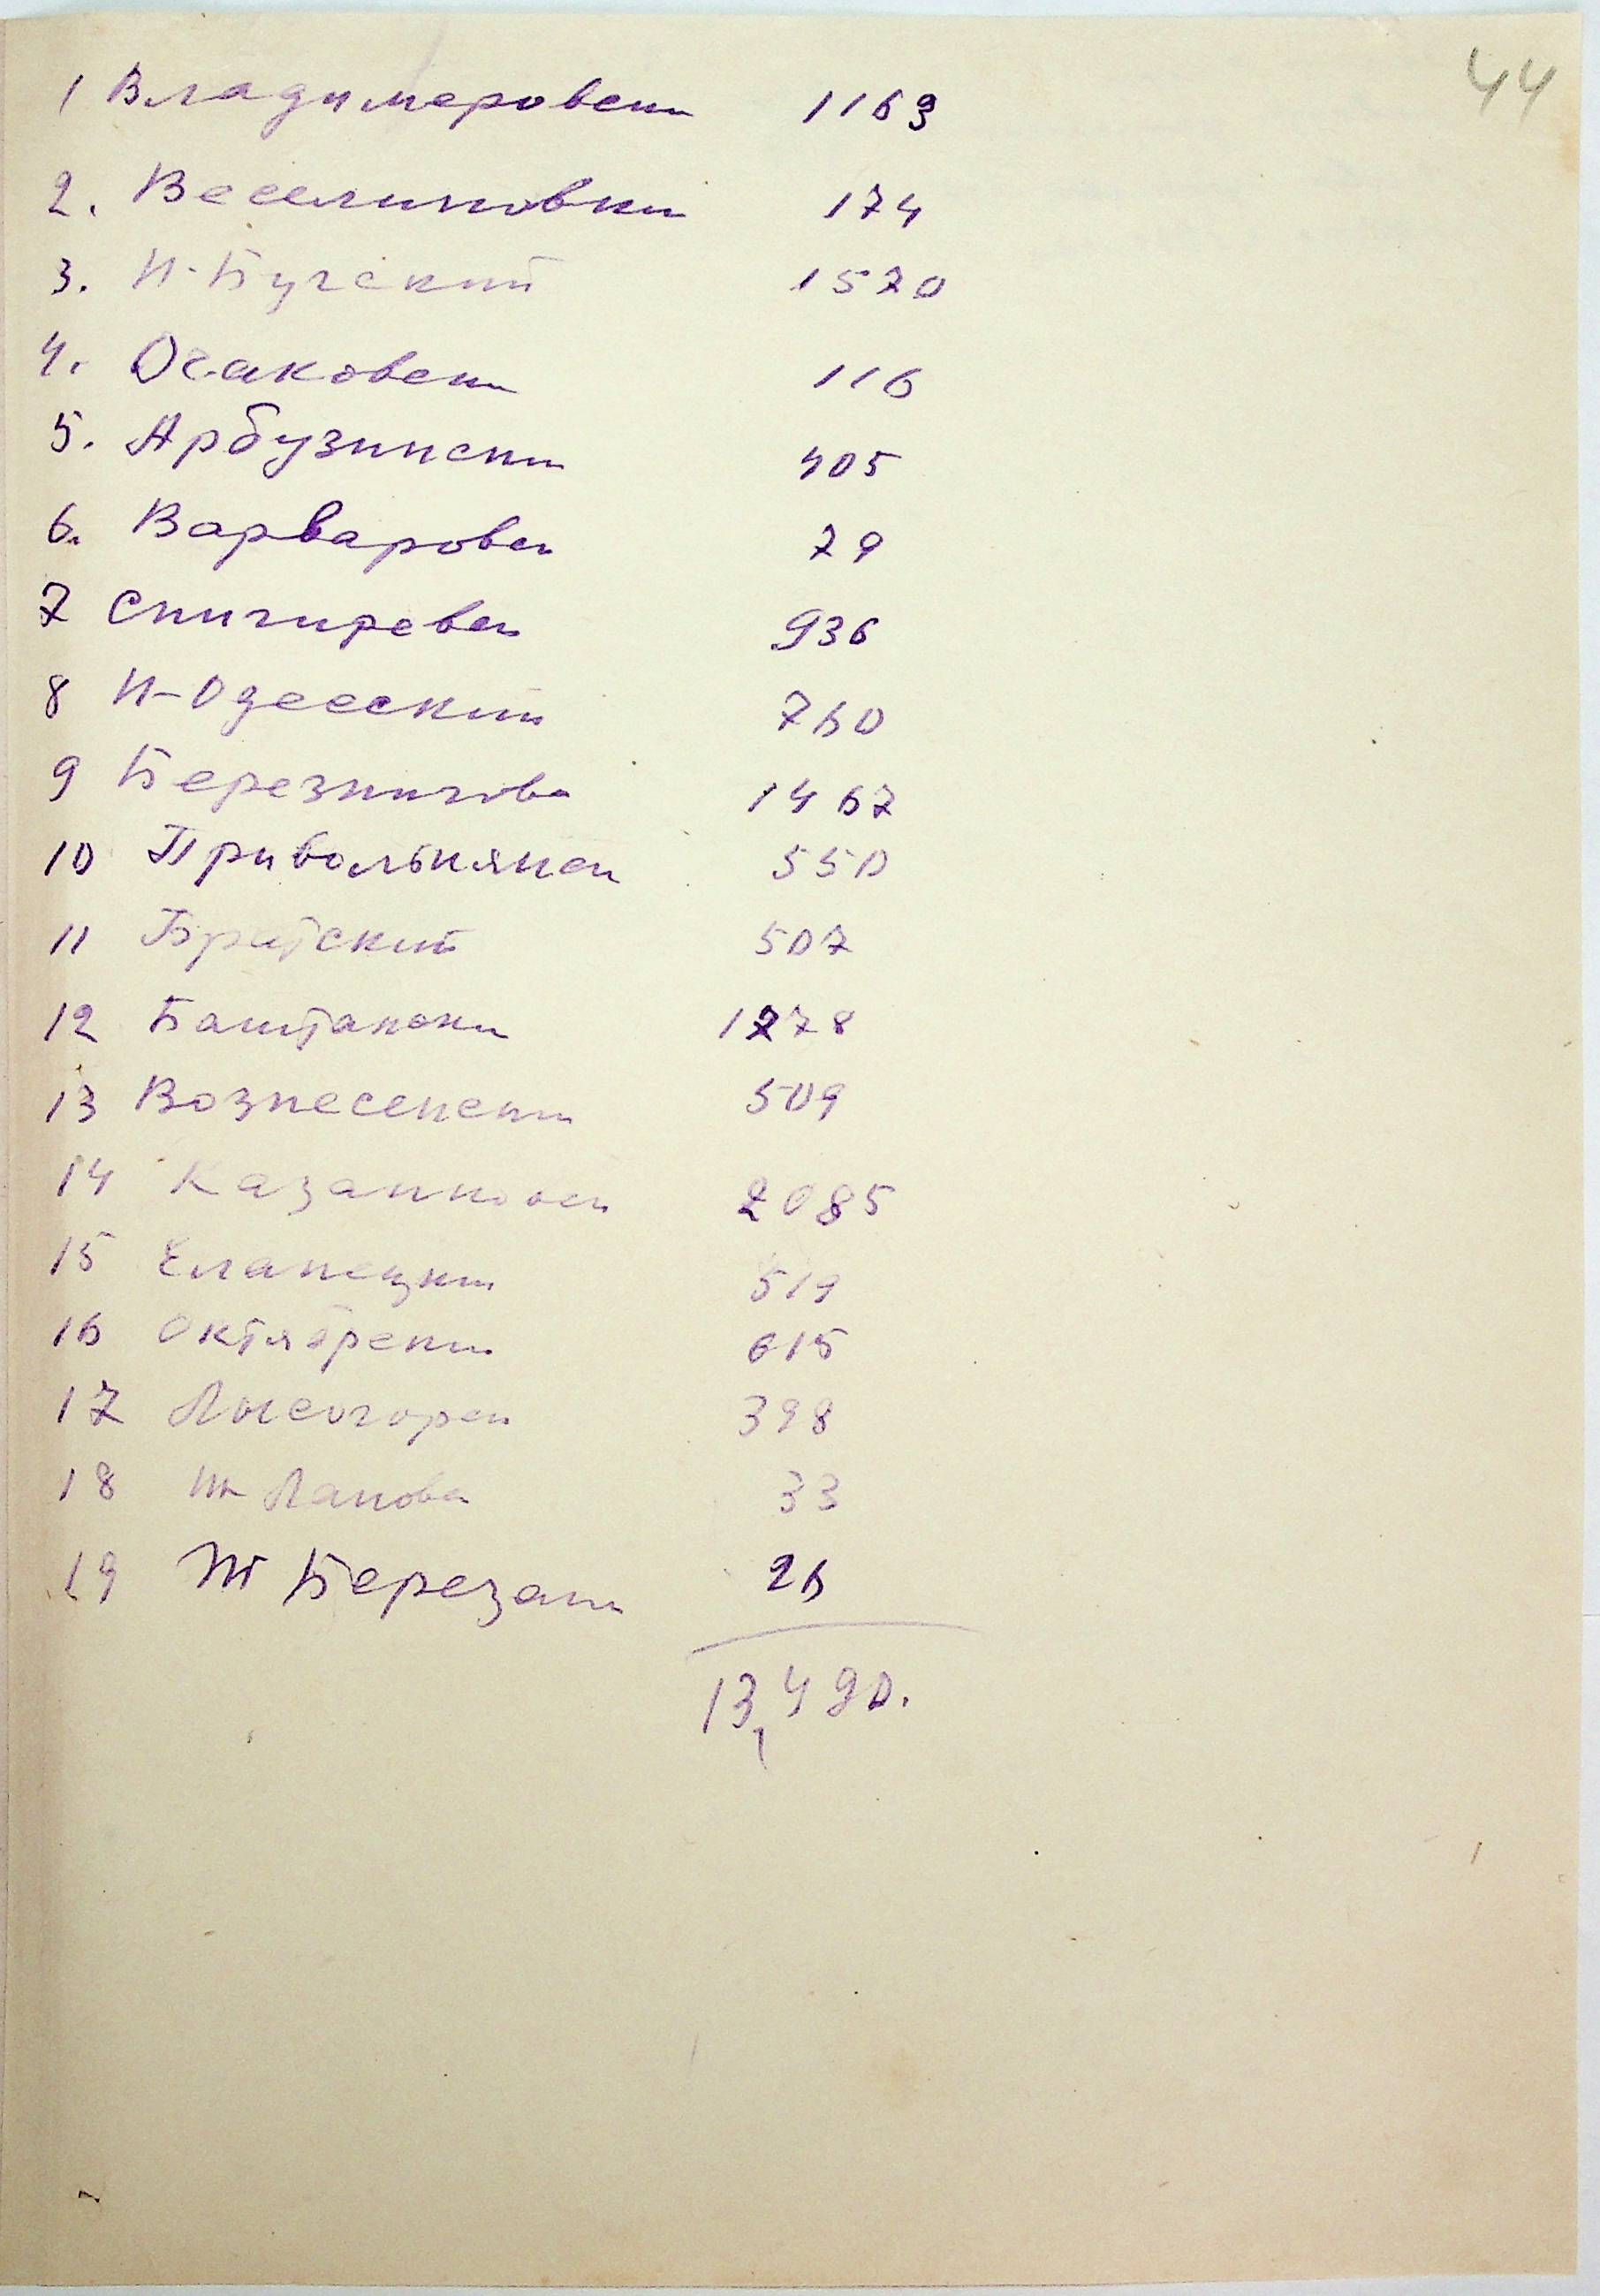 44
1 Владимеровски 1169
2. Веселиновки 174
3. Н-Бугский 1570
4. Очаковски 116
5. Арбузински 405
6. Варваровск 79
7 Снигиревск 936
8 Н-Одесский 760
9 Березнигова 1467
10 Привольнянск 550
11 Братский 507
12 Баштански 1278
13 Вознесенски 509
14 Казанковск 2085
15 Еланецки 519
16 Октябрски 615
17 Лысогорск 398
18 33
19 Тт Березани 26
13,490.